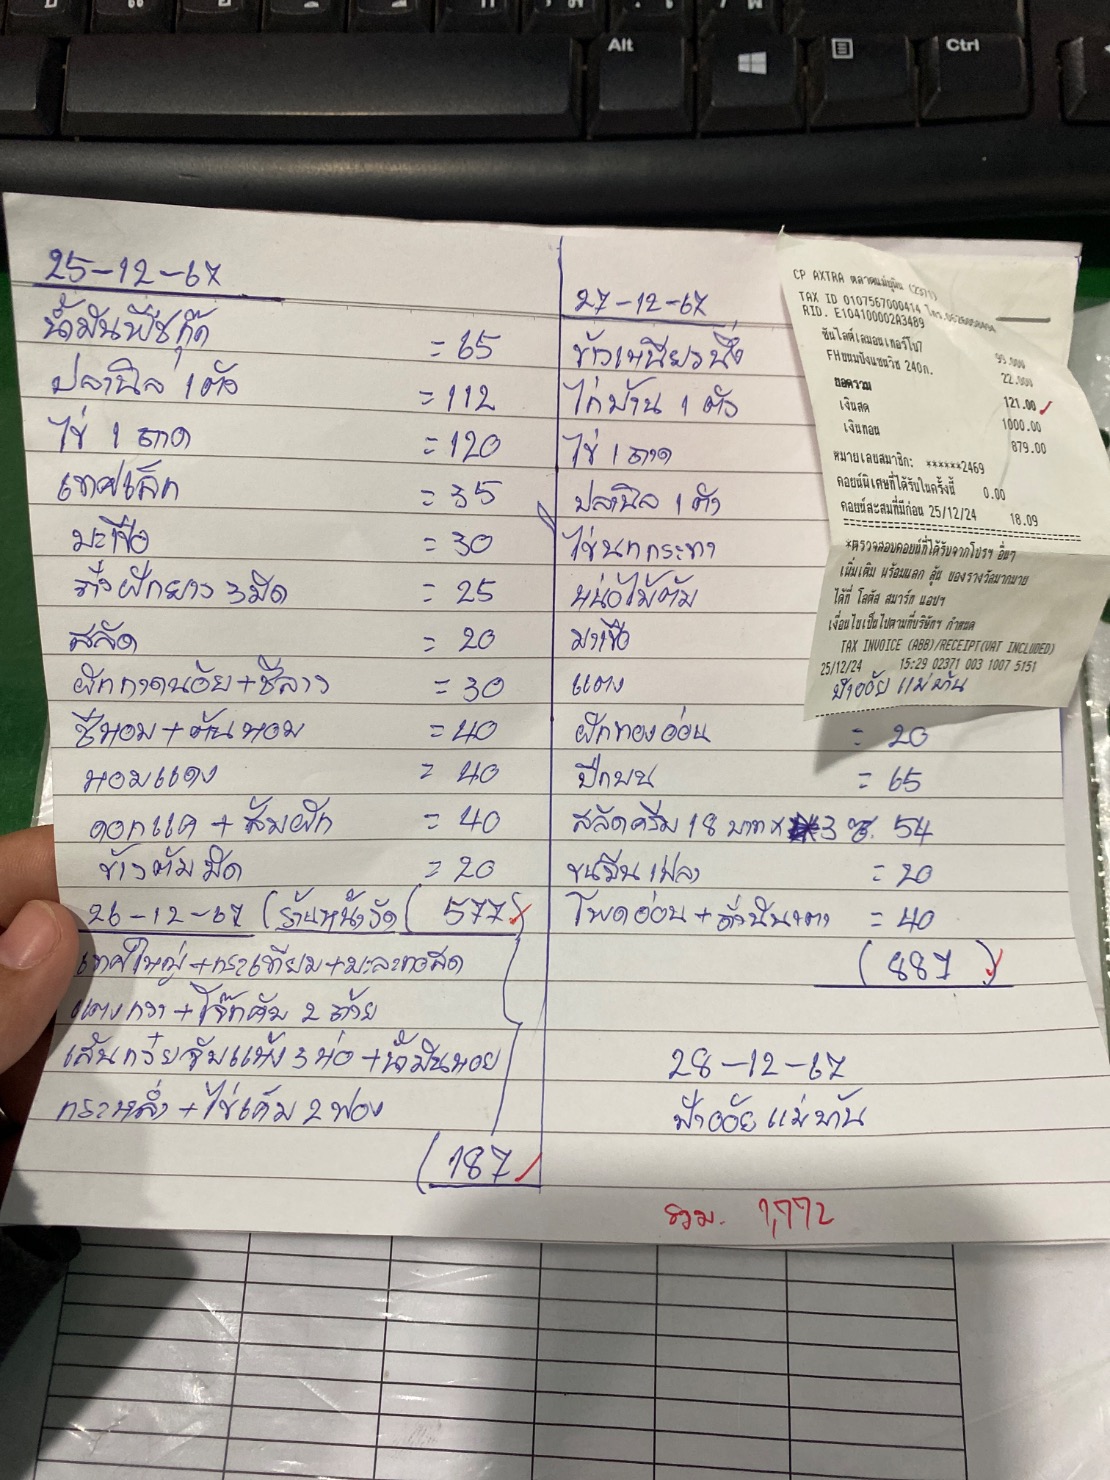 Alt
Ctrl
25-12-67
น้ำมันพืชกุ๊ก = 65
ปลานิล 1 ตัว = 112
ไข่ 1 ถาด = 120
เทศเล็ก = 35
มะเขือ = 30
ถั่วฝักยาว 3 มัด = 25
สลัด = 20
ผักกาดน้อย + ชีลาว = 30
ชีหอม + ต้นหอม = 40
หอมแดง = 40
ดอกแค + ส้มผัก = 40
ข้าวต้มมัด = 20
(577)
26-12-67 (ร้านหน้าวัด)
เทศใหญ่ + กระเทียม + มะละกอสด
แตงกวา + โจ๊กคัพ 2 ถ้วย
เส้นก๋วยจั๊บแห้ง 3 ห่อ + น้ำมันหอย
กระหล่ำ + ไข่เค็ม 2 ฟอง
(187)
27-12-67
ข้าวเหนียวนึ่ง
ไก่บ้าน 1 ตัว
ไข่ 1 ถาด
ปลานิล 1 ตัว
ไข่นกกระทา
หน่อไม้ต้ม
มะเขือ
แตง
ฟักทองอ่อน = 20
ปีกบน = 65
สลัดครีม 18 บาท x 3 ซ. 54
ขนมจีน = 20
โพดอ่อน + = 40
(887)
28-12-67
ป้าออัย แม่ทัน
รวม. 1,772
CP AXTRA ตลาดแม่ (2371)
TAX ID 0107567000414 โทร.
RID. E104100002A3489
ซันไลต์เลมอนเทอร์โบ 99.000
FHขนมปังแซนวิช 240ก. 22.000
ยอดรวม 121.00
เงินสด 1000.00
เงินทอน 879.00
หมายเลขสมาชิก: ******2469
คอยน์พิเศษที่ได้รับในครั้งนี้ 0.00
คอยน์สะสมที่มีก่อน 25/12/24 18.09
*ตรวจสอบคอยน์ที่ได้รับจากโปรฯ อื่นๆ
เพิ่มเติม พร้อมแลก ลุ้น ของรางวัลมากมาย
ได้ที่ โลตัส สมาร์ท แอปฯ
เงื่อนไขเป็นไปตามที่บริษัทฯ กำหนด
TAX INVOICE (ABB)/RECEIPT(VAT INCLUDED)
25/12/24 15:29 02371 003 1007 5151
ป้าออัย แม่ทัน